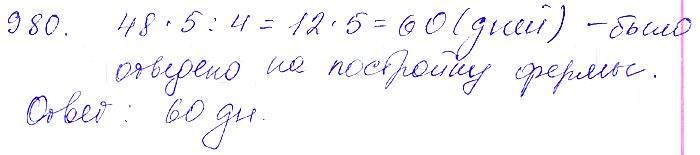 980. 48 · 5 : 4 = 12 · 5 = 60 (дней) – было
отведено на постройку фермы.
Ответ: 60 дн.